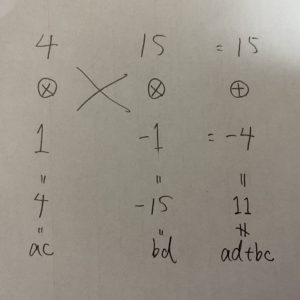 4 15 = 15
⊗ ⊗ ⊕
1 -1 = -4
= = =
4 -15 11
= = =
ac bd ad+bc